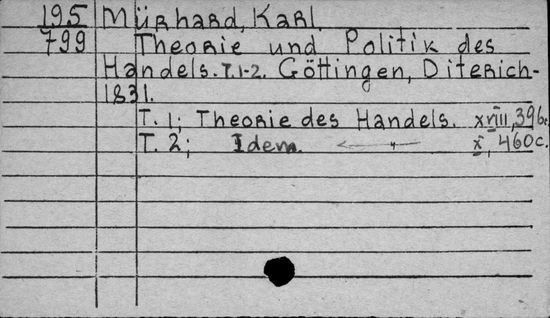 195 Mürhard, Karl.
799 Theorie und Politik des
Handels. T. 1-2. Göttingen, Diterich-
1831.
T. 1; Theorie des Handels. XVIII, 396c.
T. 2; Idem. ← " X, 460c.